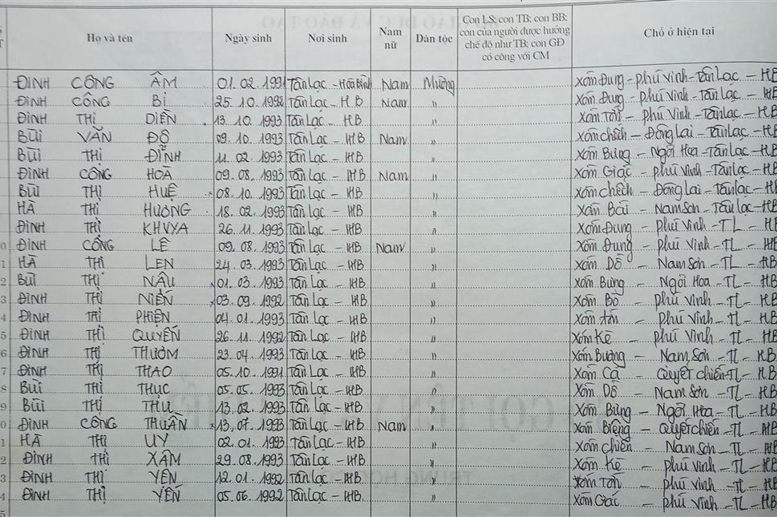 Họ và tên Ngày sinh Nơi sinh Nam nữ Dân tộc Con LS; con TB; con BB; con của người được hưởng chế độ như TB; con GĐ có công với CM Chỗ ở hiện tại
ĐINH CÔNG ÂM 01.02.1991 Tân Lạc - Hòa Bình Nam Mường Xóm Đung - Phú Vinh - Tân Lạc - HB
ĐINH CÔNG BỈ 25.10.1992 Tân Lạc - HB Nam " Xóm Đung - Phú Vinh - Tân Lạc - HB
ĐINH THỊ DIỀN 13.10.1993 Tân Lạc - HB. " Xóm Tôn - Phú Vinh - Tân Lạc - HB
BÙI VĂN ĐÔ 09.10.1993 Tân Lạc - HB Nam " Xóm Chếch - Đông Lai - Tân Lạc - HB
BÙI THỊ ĐỈNH 11.02.1993 Tân Lạc - HB " Xóm Bưng - Ngòi Hoa - Tân Lạc - HB
ĐINH CÔNG HOÀ 09.08.1993 Tân Lạc - HB Nam " Xóm Giác - Phú Vinh - Tân Lạc - HB
BÙI THỊ HUỆ 08.10.1993 Tân Lạc - HB " Xóm Chếch - Đông Lai - Tân Lạc - HB
HÀ THỊ HƯƠNG 18.02.1993 Tân Lạc - HB " Xóm Bái - Nam Sơn - Tân Lạc - HB
ĐINH THỊ KHUYA 26.11.1993 Tân Lạc - HB " Xóm Đung - Phú Vinh - TL - HB
0 ĐINH CÔNG LÊ 09.08.1993 Tân Lạc - HB Nam " Xóm Đung - Phú Vinh - TL - HB
1 HÀ THỊ LEN 24.03.1993 Tân Lạc - HB " Xóm Dồ - Nam Sơn - TL - HB
2 BÙI THỊ NÂU 01.03.1993 Tân Lạc - HB " Xóm Bưng - Ngòi Hoa - TL - HB
3 ĐINH THỊ NIỀN 03.09.1992 Tân Lạc - HB " Xóm Bò - Phú Vinh - TL - HB
4 ĐINH THỊ PHIỆN 04.01.1993 Tân Lạc - HB " Xóm - Phú Vinh - TL - HB
5 ĐINH THỊ QUYẾN 26.11.1992 Tân Lạc - HB " Xóm Kè - Phú Vinh - TL - HB
6 ĐINH THỊ THƯƠM 23.04.1993 Tân Lạc - HB " Xóm Bương - Nam Sơn - TL - HB
7 ĐINH THỊ THAO 05.10.1991 Tân Lạc - HB " Xóm Cá - Quyết Chiến - TL - HB
8 BÙI THỊ THỤC 05.05.1993 Tân Lạc - HB " Xóm Dồ - Nam Sơn - TL - HB
9 BÙI THỊ THU 13.02.1993 Tân Lạc - HB " Xóm Bưng - Ngòi Hoa - TL - HB
0 ĐINH CÔNG THUẦN 13.07.1993 Tân Lạc - HB Nam " Xóm Biệng - Quyết Chiến - TL - HB
1 HÀ THỊ UY 02.01.1993 Tân Lạc - HB " Xóm Chiến - Nam Sơn - TL - HB
2 ĐINH THỊ XÂM 29.08.1993 Tân Lạc - HB " Xóm Kè - Phú Vinh - TL - HB
3 ĐINH THỊ YÊN 12.01.1992 Tân Lạc - HB " Xóm Tôn - Phú Vinh - TL - HB
4 ĐINH THỊ YẾN 05.06.1992 Tân Lạc - HB. " Xóm Giác - Phú Vinh - TL - HB